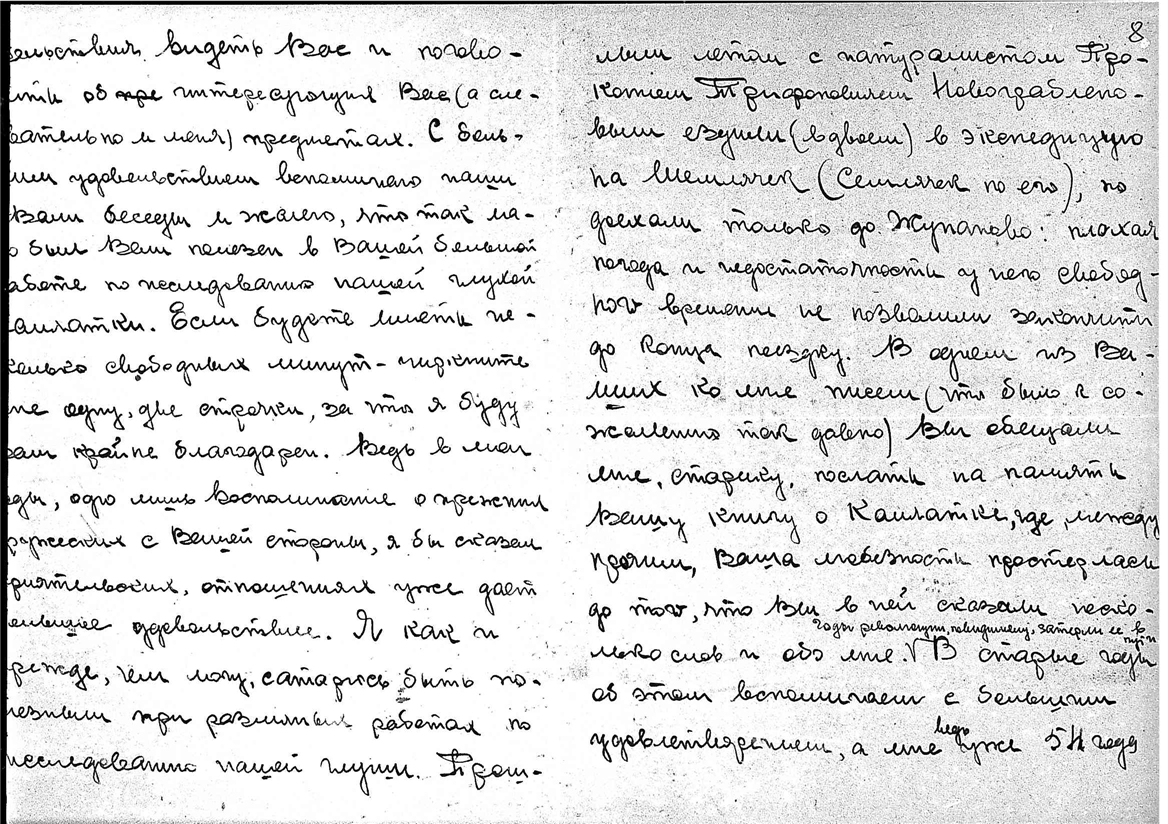 вольствия видеть Вас и погово-
ить об интересующих Вас (а сле-
вательно и меня) предметах. С боль-
им удовольствием вспоминаю наши
Вами беседы и жалею, что так ма-
о был Вам полезен в Вашей большой
аботе по исследованию нашей глухой
амчатки. Если будете иметь не-
колько свободных минут - черкните
не одну, две строчки, за что я буду
ам крайне благодарен. Ведь в мои
оды, одно лишь воспоминание о прежних
ружеских с Вашей стороны, я бы сказал
риятельских, отношениях уже дает
большое удовольствие. Я как и
режде, чем могу, стараюсь быть по-
лезным при различных работах по
исследованию нашей глуши. Прош-
8
лым летом с натуралистом Про-
копием Трифоновичем Новограблено-
вым ездили (вдвоем) в экспедицию
на Шемлячек (Семлячек по его), но
доехали только до Жупаново: плохая
погода и недостаточность у него свобод-
ного времени не позволили закончить
до конца поездку. В одном из Ва-
ших ко мне писем (это было к со-
жалению так давно) Вы обещали
мне, старику, послать на память
Вашу книгу о Камчатке, где, между
прочим, Ваша любезность простерлась
до того, что Вы в ней сказали неско-
годы революции, повидимому, затерли ее в пути
лько слов и обо мне. √ В старые годы
об этом вспоминаем с большим
удовлетворением, а мне ведь уже 54 года